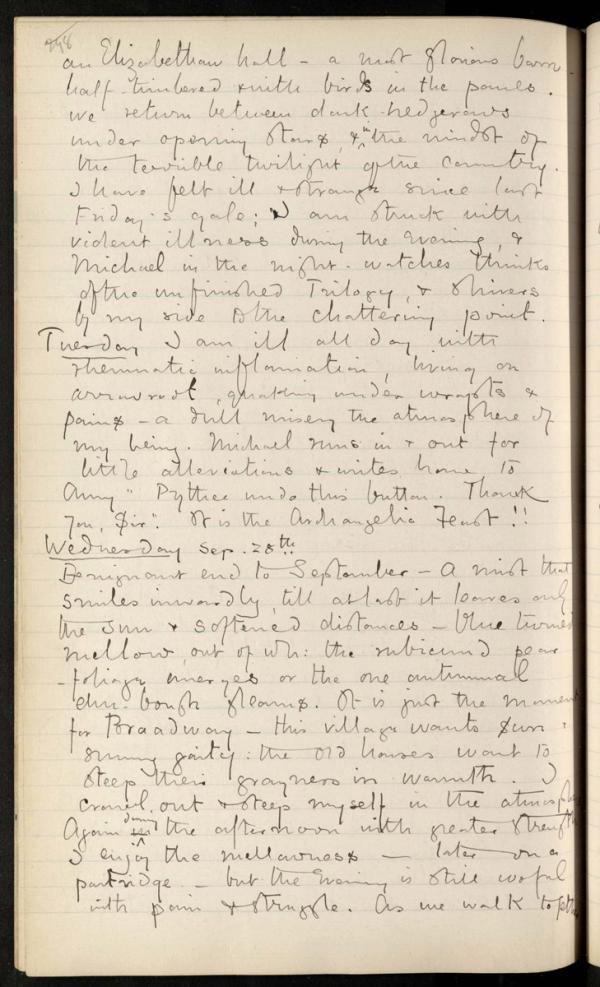 an Elizabethan hall – a most glorious barn
half-timbered & with birds in the panels.
We return between dark hedgerows
under opening stars, & in the midst of
the terrible twilight of the country.
I have felt ill & strange since last
Friday's gale; I am struck with
violent illness during the Evening, &
Michael in the night-watches thinks
of the unfinished Trilogy, & shivers
by my side to the chattering point.
Tuesday I am ill all day with
rheumatic inflamation, living on
arrowroot, quaking under wraps &
pains – a dull misery the atmosphere of
my being. Michael runs in & out for
little alleviations & writes home to
Amy "Pythee undo this button. Thank
you, Sir". It is the Archangelic Feast!!
Wednesday Sep. 28th.
Benignant end to September – A mist that
smiles inwardly, till at last it leaves only
the sun & softened distances – blue turned
mellow, out of wh: the rubicund pear
-foliage emerges or the one autumnal
elm-bough gleams. It is just the moment
for Broadway – this village wants sun:
sunny gaity: the old houses want to
steep their grayness in warmth. I
crawl out & steep myself in the atmosphere
Again during the afternoon with greater strength
I enjoy the mellowness – later on a
partridge – but the Evening is still woful
with pain & struggle. As we walk to